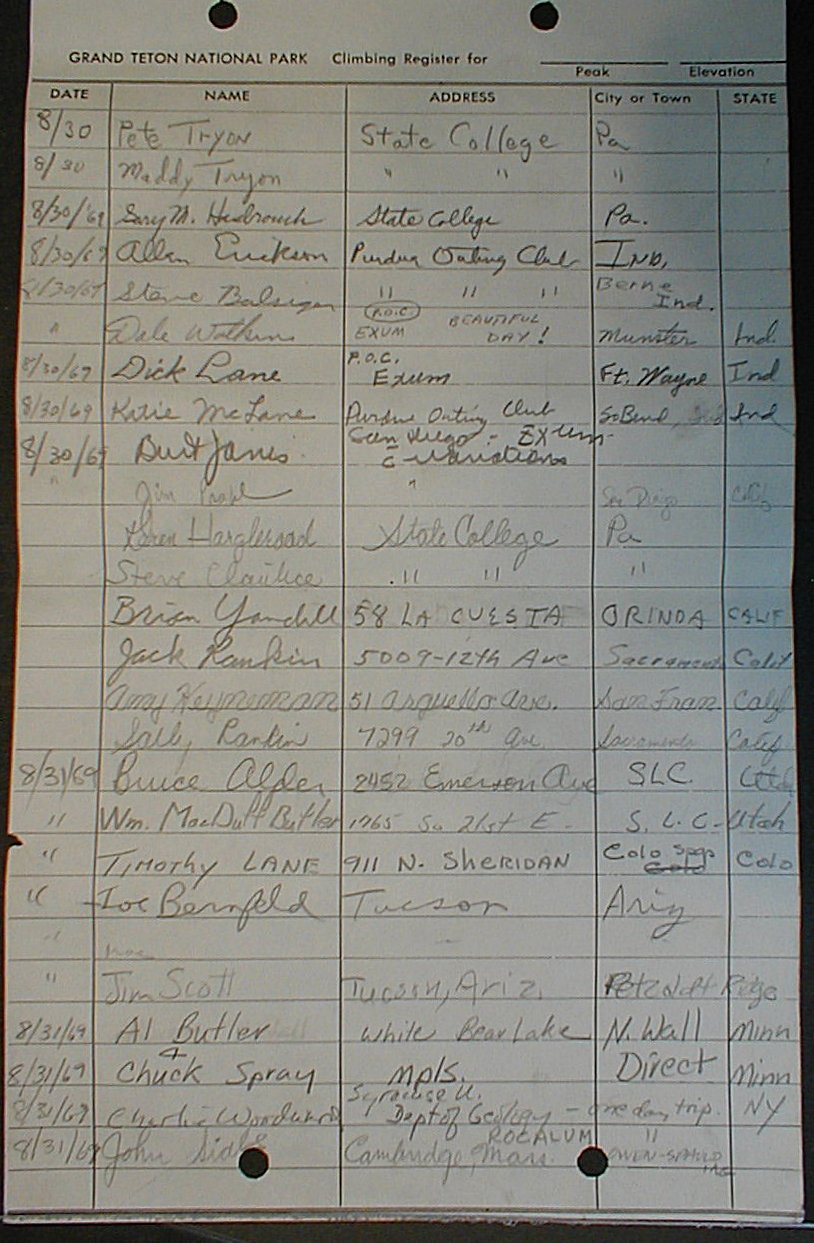 GRAND TETON NATIONAL PARK Climbing Register for
Peak Elevation
DATE NAME ADDRESS City or Town STATE
8/30 Pete Tryon State College Pa
8/30 Maddy Tryon " " "
8/30/69 M. State College Pa.
8/30/69 Allen Erickson Purdue Outing Club IND.
8/30/69 Steve " " " Berne Ind.
" Dale Watkins P.O.C. EXUM BEAUTIFUL DAY! Munster Ind.
8/30/69 Dick Lane P.O.C. Exum Ft. Wayne Ind
8/30/69 Katie McLane Purdue Outing Club So Bend, Ind
8/30/69 Burt Janis San Diego - Exum variations
" Jim " San Diego Calif
Karen State College Pa
Steve " " "
Brian Yandell 58 LA CUESTA ORINDA CALIF
Jack Rankin 5009-12th Ave Sacramento Calif
Amy 51 Arguello Ave. San Fran Calif
Sally Rankin 7299 20th Ave. Sacramento Calif
8/31/69 Bruce Alder 2452 Emerson Ave SLC. Utah
" Wm. MacDuff Butler 1765 So 21st E. S. L. C. Utah
" TIMOTHY LANE 911 N. SHERIDAN Colo Spgs Colo
" Joe Bernfeld Tucson Ariz
" Jim Scott Tucson, Ariz. Petzoldt Ridge
8/31/69 Al Butler White Bear Lake N. Wall Minn
8/31/69 & Chuck Spray Mpls. Direct Minn
8/31/69 Charlie Woodward Syracuse U. Dept of Geology - one day trip. NY
8/31/69 John Cambridge, Mass. "